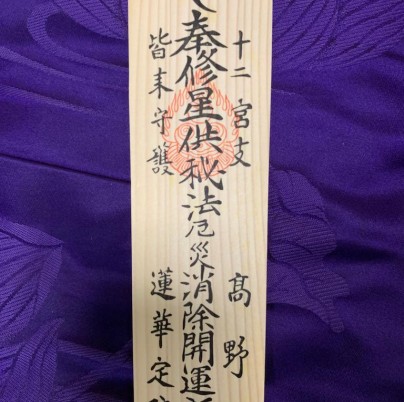 十二宮支
高野
奉修星供秘法厄災消除開運
皆来守護
蓮華定